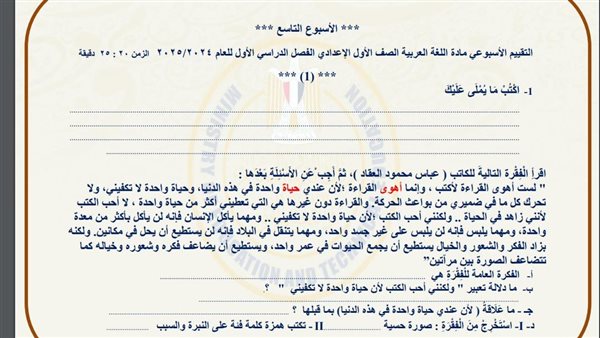 *** الأسبوع التاسع ***
التقييم الأسبوعي مادة اللغة العربية الصف الأول الإعدادي الفصل الدراسي الأول للعام ٢٠٢٥/٢٠٢٤ الزمن ٢٠ : ٢٥ دقيقة
*** (1) ***
1- اكْتُبْ مَا يُمْلَى عَلَيْكَ
اقرأ الْفِقْرة التاليةَ للكاتب ( عباس محمود العقاد )، ثمَّ أجِب ْعَنِ الأَسْئِلَةِ بَعْدَها :
" لست أهوى القراءة لأكتب ، وإنما أهوى القراءة ؛لأن عندي حياة واحدة في هذه الدنيا، وحياة واحدة لا تكفيني، ولا
تحرك كل ما في ضميري من بواعث الحركة. والقراءة دون غيرها هي التي تعطيني أكثر من حياة واحدة ، لا أحب الكتب
لأنني زاهد في الحياة .. ولكنني أحب الكتب ؛لأن حياة واحدة لا تكفيني .. ومهما يأكل الإنسان فإنه لن يأكل بأكثر من معدة
واحدة، ومهما يلبس فإنه لن يلبس على غير جسد واحد، ومهما يتنقل في البلاد فإنه لن يستطيع أن يحل في مكانين. ولكنه
بزاد الفكر والشعور والخيال يستطيع أن يجمع الحيوات في عمر واحد، ويستطيع أن يضاعف فكره وشعوره وخياله كما
تتضاعف الصورة بين مرآتين"
أ- الفكرة العامة للْفِقْرَةِ هي
ب- ما دلالة تعبير " ولكنني أحب الكتب لأن حياة واحدة لا تكفيني " ؟
ج - ما عَلاقَةُ ( لأن عندي حياة واحدة في هذه الدنيا) بما قبلها ؟
د- I- اسْتَخْرِجْ مِنَ الْفِقْرَةِ : صورة حسية II - تكتب همزة كلمة فنة على النبرة والسبب
MINISTRY
EDUCATION AND TECHNICAL EDUCATION